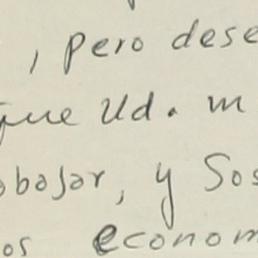 , pero dese
que Ud. m
abajar, y Sos
os econom